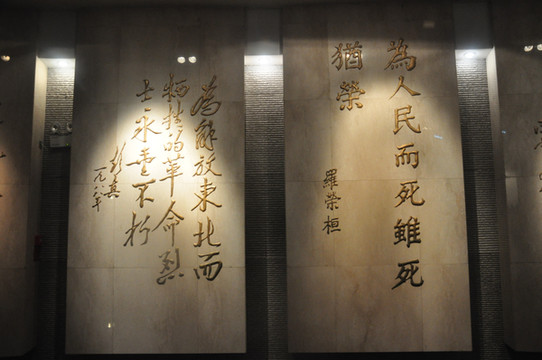 為人民而死雖死
猶榮
羅榮桓
为解放東北而
牺牲的革命烈
士永垂不朽
彭真